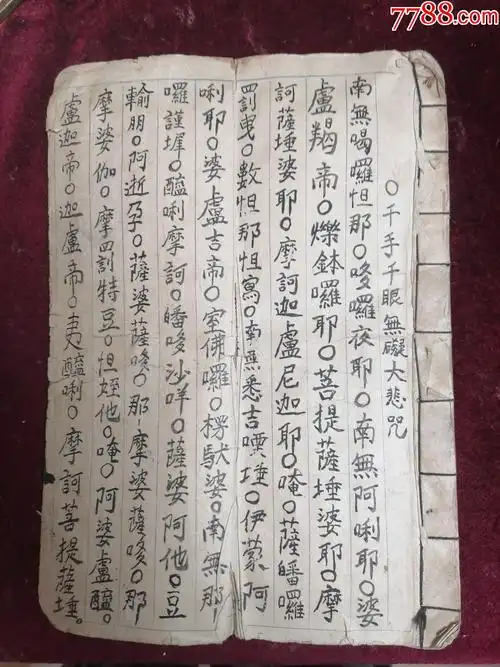 7788.com
〇千手千眼無礙大悲咒
南無喝囉怛那〇哆囉夜耶〇南無阿唎耶〇婆
盧羯帝〇爍鉢囉耶〇菩提薩埵婆耶〇摩
訶薩埵婆耶〇摩訶迦盧尼迦耶〇唵〇薩皤囉
罰曳〇數怛那怛寫〇南無悉吉嘌埵〇伊蒙阿
唎耶〇婆盧吉帝〇室佛囉〇楞馱婆〇南無那
囉謹墀〇醯唎摩訶〇皤哆沙咩〇薩婆阿他〇豆
輸朋〇阿逝孕〇薩婆薩哆〇那摩婆薩哆〇那
摩婆伽〇摩罰特豆〇怛姪他〇唵〇阿婆盧醯。
盧迦帝〇迦盧帝〇夷醯唎〇摩訶菩提薩埵。